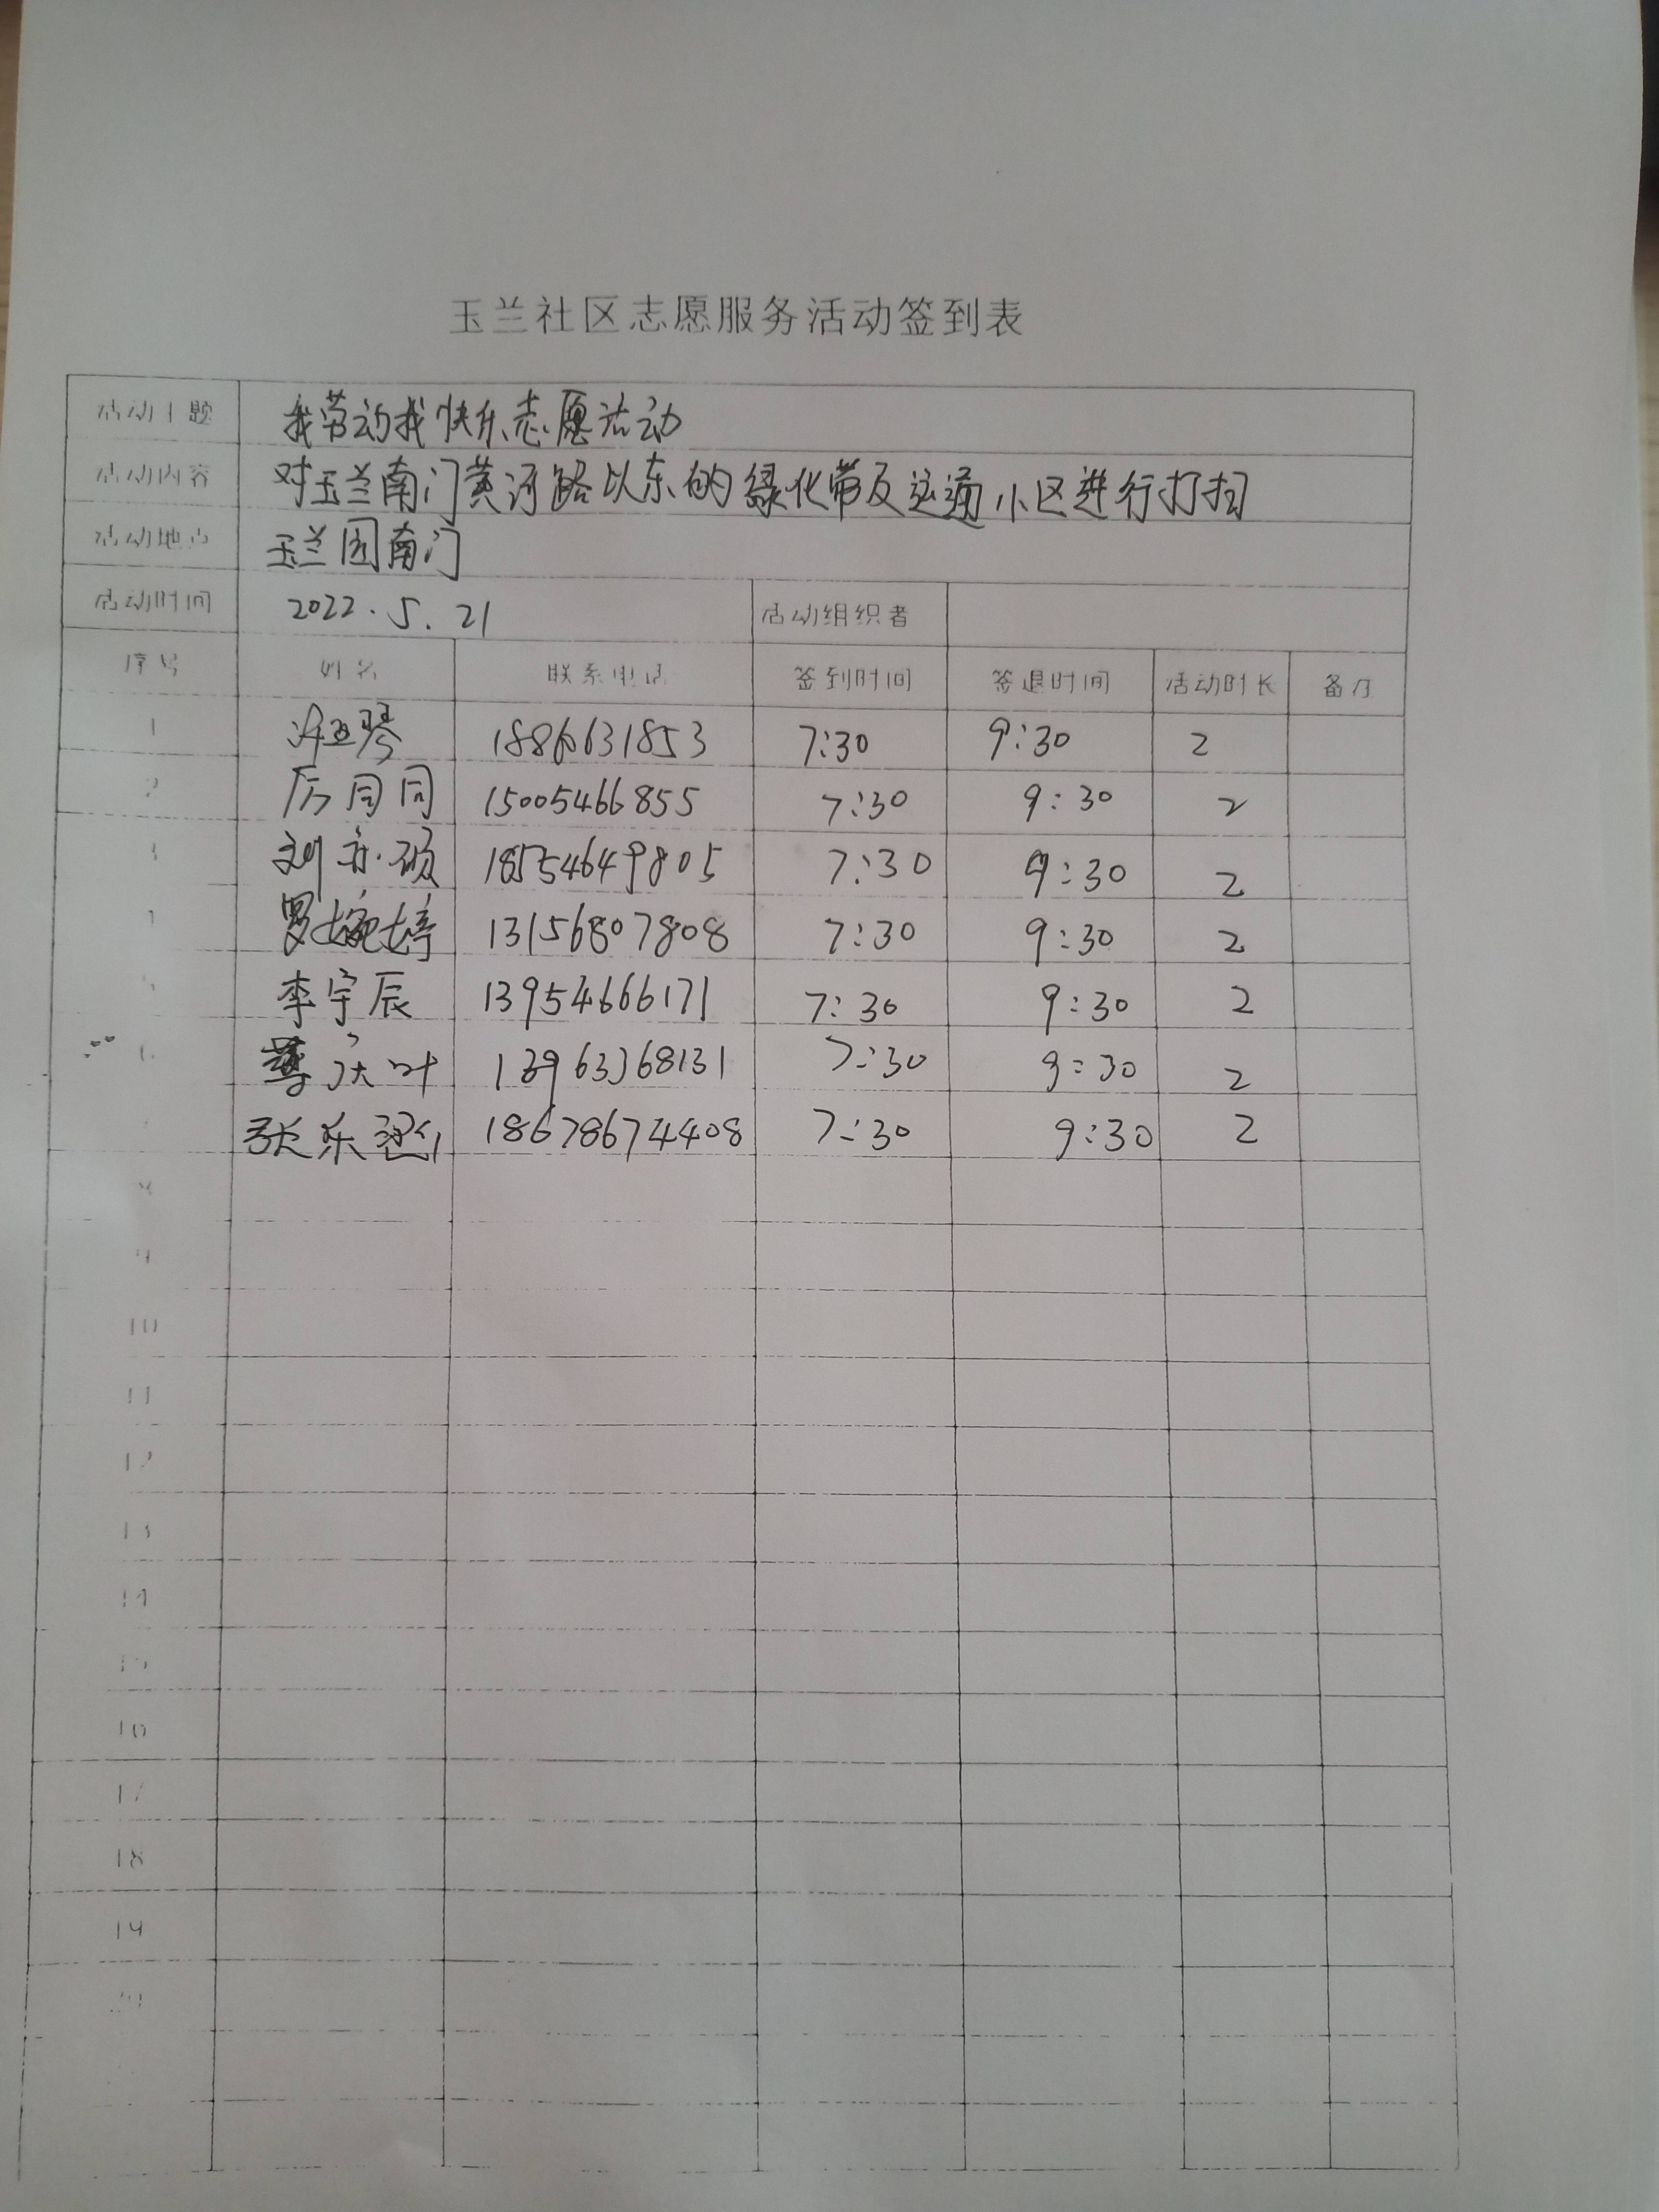 玉兰社区志愿服务活动签到表
活动主题 我劳动我快乐志愿活动
活动内容 对玉兰南门黄河路以东的绿化带及运通小区进行打扫
活动地点 玉兰园南门
活动时间 2022.5.21 活动组织者
序号 姓名 联系电话 签到时间 签退时间 活动时长 备注
1 琴 1886631853 7:30 9:30 2
2 厉同同 15005466855 7:30 9:30 2
3 刘亦硕 18554649805 7:30 9:30 2
罗婉婷 13156807808 7:30 9:30 2
5 李宇辰 13954666171 7:30 9:30 2
6 叶 13963368131 7:30 9:30 2
张乐 18678674408 7:30 9:30 2
8
9
10
11
12
13
14
15
16
17
18
19
20